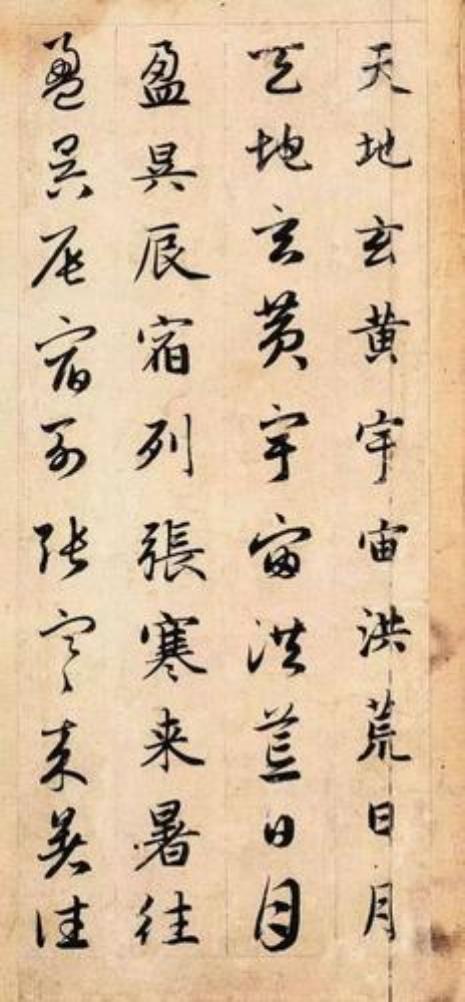 天地玄黄宇宙洪荒日月
天地玄黄宇宙洪荒日月
盈昃辰宿列張寒来暑往
盈昃辰宿列张寒来暑往